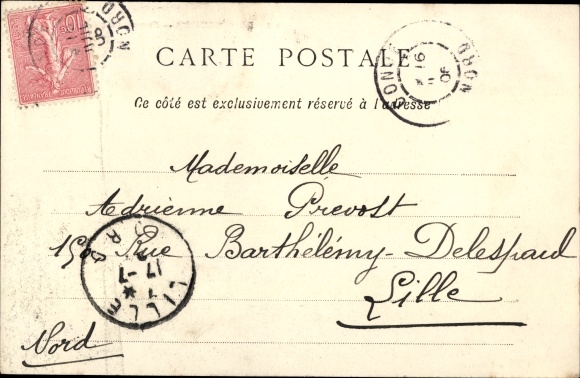 10
NORD
CARTE POSTALE
16
NORD
Ce côté est exclusivement réservé à l'adresse
Mademoiselle
Adrienne Prévost
150 Rue Barthélémy-Delespaul
Lille
LILLE
17 -7
NORD
Nord